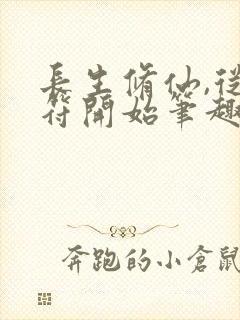 長生脩仙,從
符開始筆趣
奔跑的小倉鼠